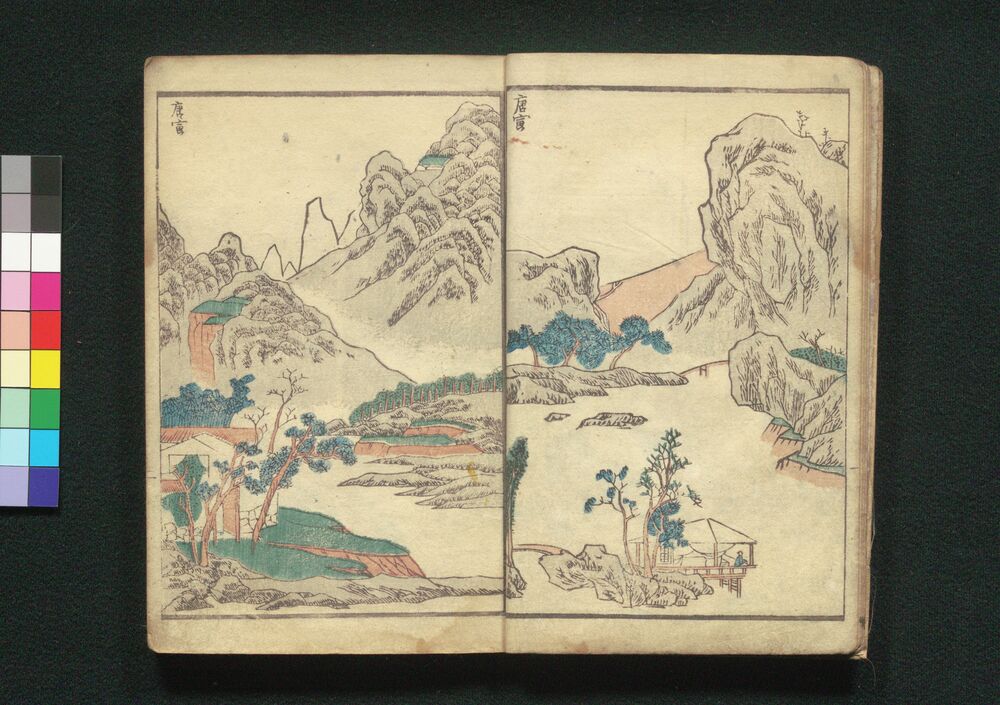 唐寅
唐寅